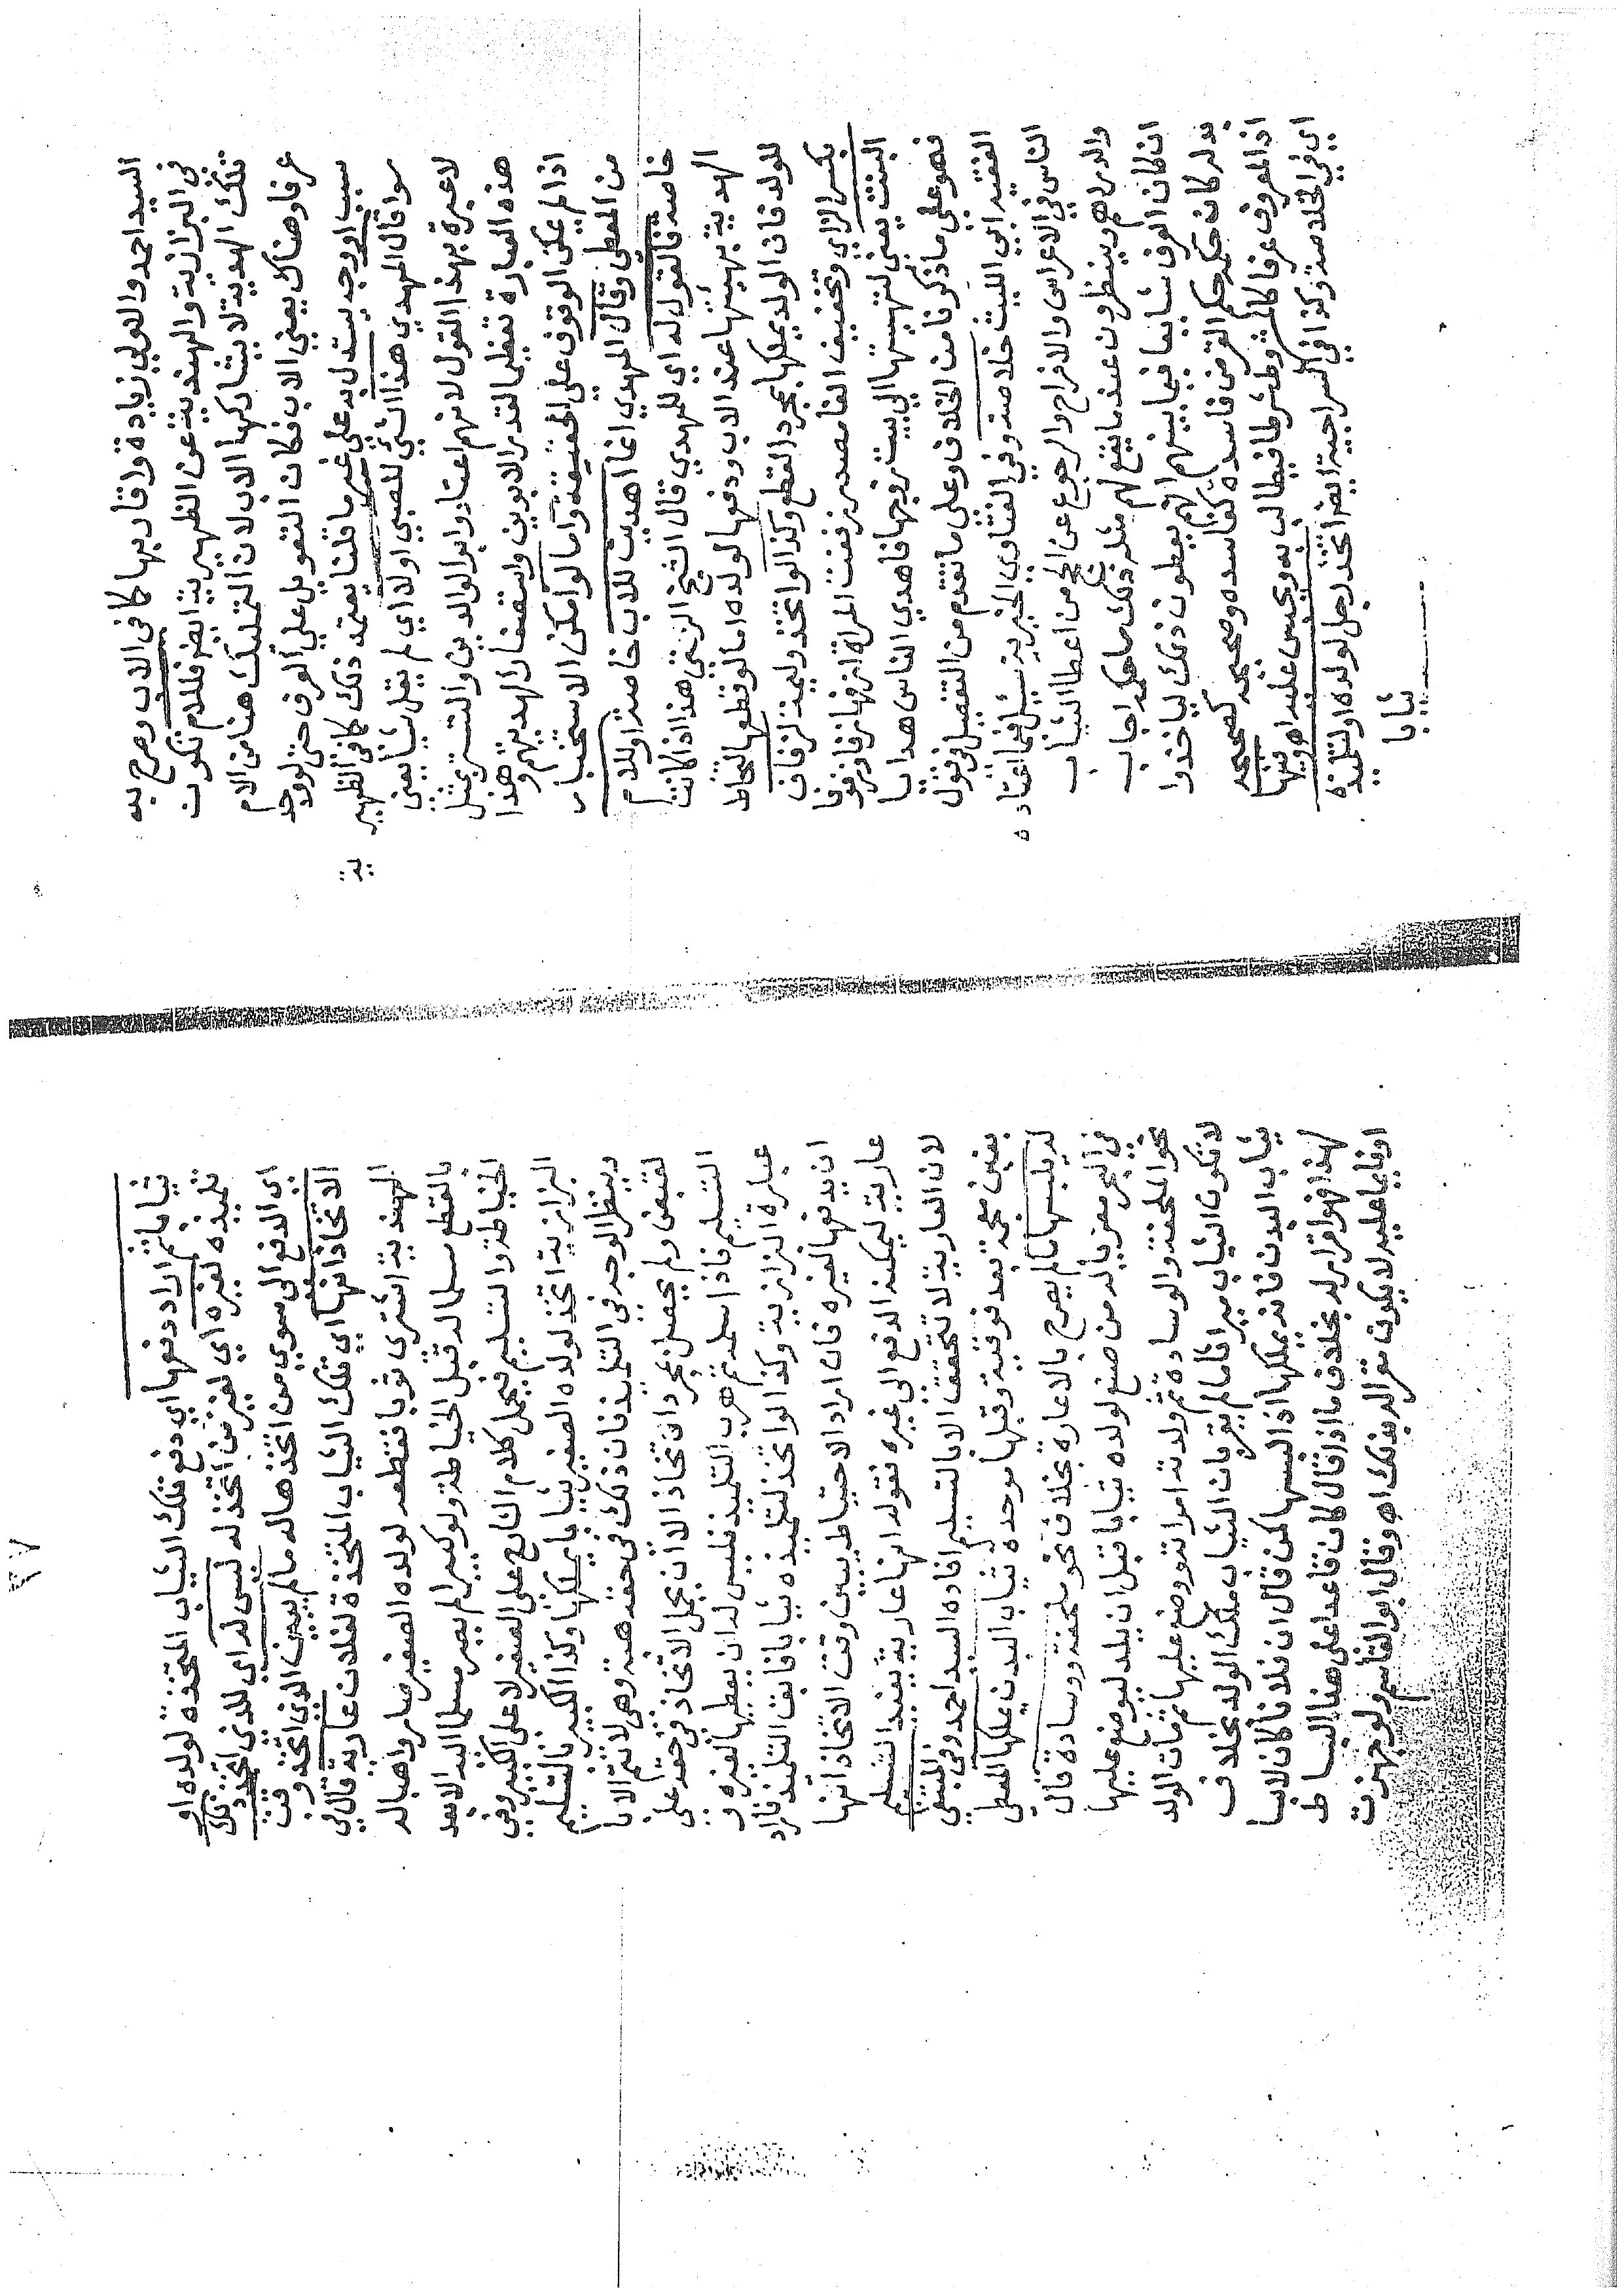 السيد احمد والاولي زيادة واقاربها كما في الاب وصرح به
في البزازية والهندية عن الظهيرية ايضا فللام تكون
تلك الهدية لا يشاركها الاب لان التمليك هنا من الام
عرفا وهناك يعني الاب فكان التعويل علي العرف حتى لو وجد
سبب او وجه يستدل به علي غير ما قلنا يعتمد ذلك كما في الظهير
ية
سوا قال المهدي هذا الشئ للصبي اولا اي لم يقل شيئا يعني
لا عبرة بهذا القول لانهم اعتادوا بر الوالدين والتستر بمثل
هذه العبارة تعظيما لقدر الابوين واستحقارا لهديتهم وهذا
اذا لم يمكن الوقوف علي الحقيقة واما لو امكن الاستخبار
من المعطي وقال المهدي انما اهديت للاب خاصة او للام
خاصة فالقول له اي للمهدي قال الشيخ الزيني هذا اذا كانت
الهدية بهيئتها عند الاب ودفعها لولده اما لو قطعها لتخاط
للولد فان الولد يملكها بمجرد القطع وكذا لو اتخذ وليمة لزفاف
بكسر الزاي وتخفيف الفا مصدر زفت المراة ازفها زفا وزفوفا
البنت يعني لتهيئتها الي بيت زوجها فاهدي الناس هدايا
فهو علي ما ذكرنا من الخلاف وعلى ما تقدم من التفصيل في قول
الفقيه ابي الليث خلاصة وفي الفتاوي الخيرية سئل فيما اعتاده
الناس في الاعراس والافراح والرجوع عن الحج من اعطا الثياب
والدراهم وينتظرون عند ما يقع لهم مثل ذلك ما حكمه اجاب
ان كان العرف شايعا فيما بينهم انهم يعطون ذلك لياخذوا
بدله كان حكمه حكم القرض فاسده كفاسده وصحيحه كصحيحه
اذ المعروف عرفا كالمشروط شرطا فيطالب به ويحبس عليه اه وفيها
اي في الخلاصة وكذا في السراجية ايضا اتخذ رجل لولده او لتلميذه
ثيابا
ثيابا ثم اراد دفعها اي دفع تلك الثياب المتخذة لولده او
تلميذه لغيره اي لغير من اتخذ له ليس له اي للذي اتخذ ذلك
اي الدفع الى سوي من اتخذها له ما لم يبين الذي اتخذ وقت
الاتخاذ انها اي تلك الثياب المتخذة لفلان عارية قال في
الهندية اشترى ثوبا فقطعه لولده الصغير صار واهبا له
بالقطع مسلما له قبل الخياطة ولو كبيرا لم يصر مسلما اليه الا بعد
الخياطة والتسليم فيحمل كلام الشارح على الصغير لا على الكبير وفي
البزازية اتخذ لولده الصغير ثيابا يملكها وكذا الكبير بالتسليم
وينظر الوجه في التلميذ فان ذلك في حقه هبة وهي لا تتم الا با
لقبض ولم يحصل بمجرد الاتخاذ الا ان يحمل الاتخاذ في حقه على
التسليم فاذا سلمه ثم هرب التلميذ فليس له ان يعطيها لغيره و
عبارة البزازية وكذا لو اتخذ لتلميذه ثيابا فابق التلميذ فاراد
ان يدفعها لغيره فان اراد الاحتياط يبين وقت الاتخاذ انها
عارية ليمكنه الدفع الى غيره فقوله انها عارية يفيد التسليم
لان العارية لا تتحقق الا بالتسليم افاده السيد احمد وفي المبتغي
بغين معجمة بعد فوقية وقبلها موحدة ثياب البدن يملكها المعطي
له بلبسها ما لم يصرح بالاعارة بخلاف نحو ملحفة ووسادة قال
في البحر معزيا له من صنع لولده ثيابا قبل ان يلد ليوضع عليها
نحو الملحفة والوسادة ثم ولدته امراته ووضع عليها ثم مات الولد
لا تكون الثياب ميراثا ما لم يقر بان الثياب ملك الولد بخلاف
ثياب البدن فانه يملكها اذا لبسها كمن قال ان فلانا كان لابسا
لهذا فهو اقرار له بخلاف ما اذا قال كان قاعدا على هذا البساط
او نايما عليه لا يكون مقرا له بذلك اه وقال ابو القاسم ولو جهزت